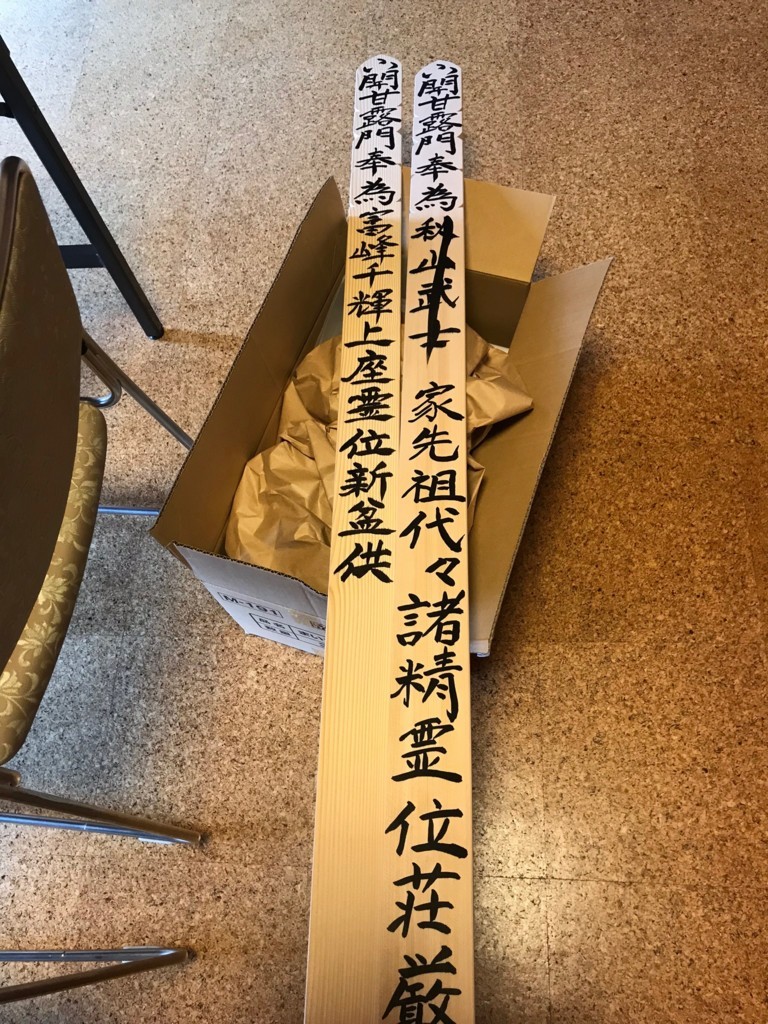 開甘露門奉為秋山武士 家先祖代々諸精霊位荘厳
開甘露門奉為富峰千輝上座霊位新盆供
M-191
品名